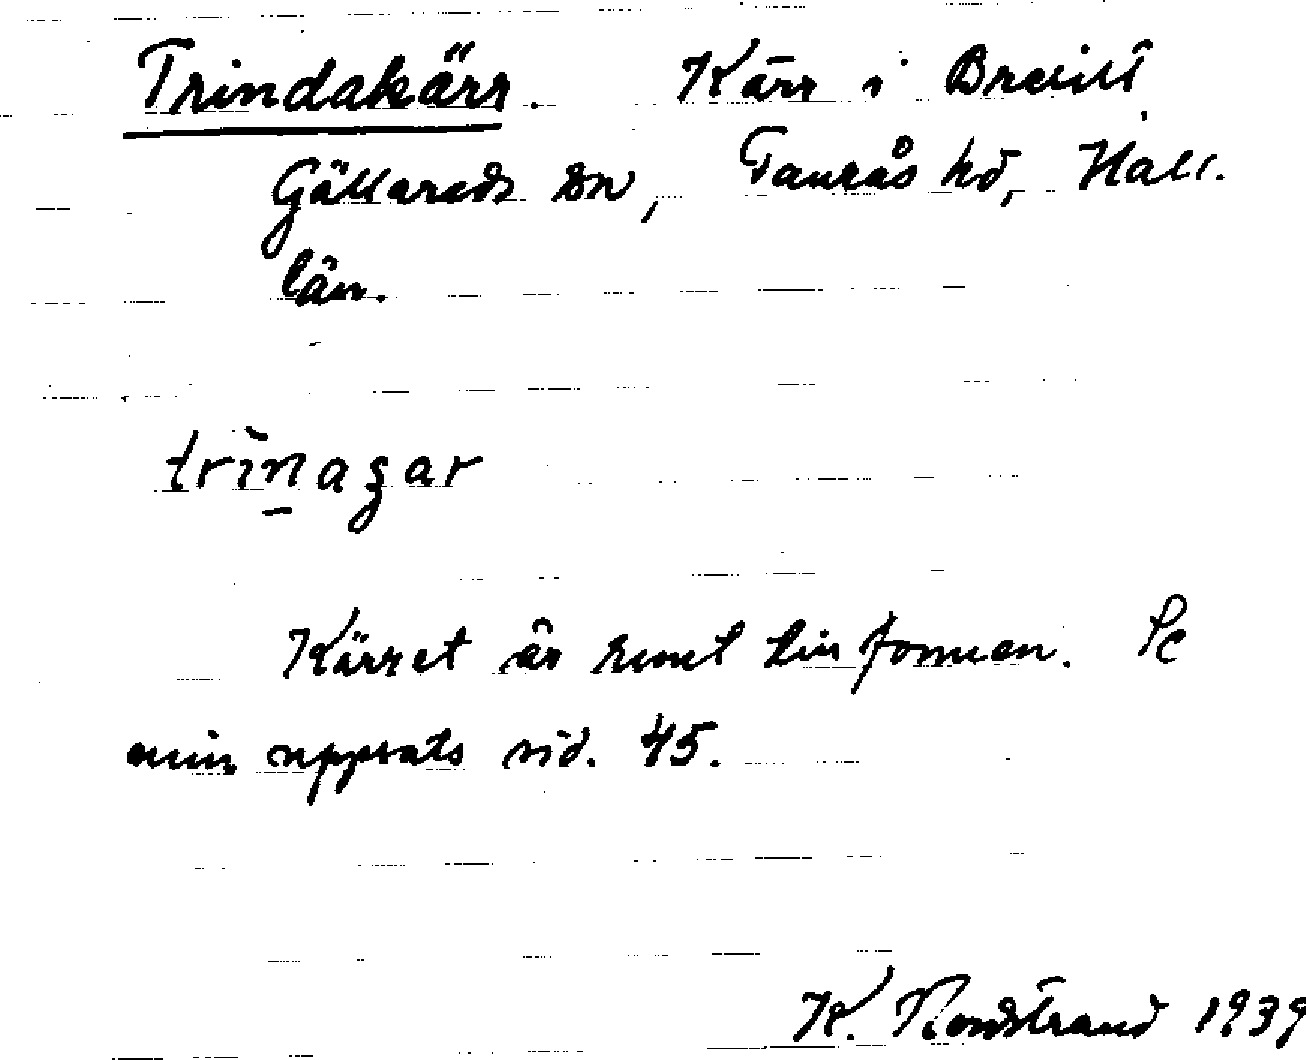 Trindakärr. Kärr i Bredilt
Gällareds sn, Faurås hd, Hall.
län.
trìnagar
Kärret är runt till formen. Se
min uppsats sid. 45.
K. Nordstrand 1939